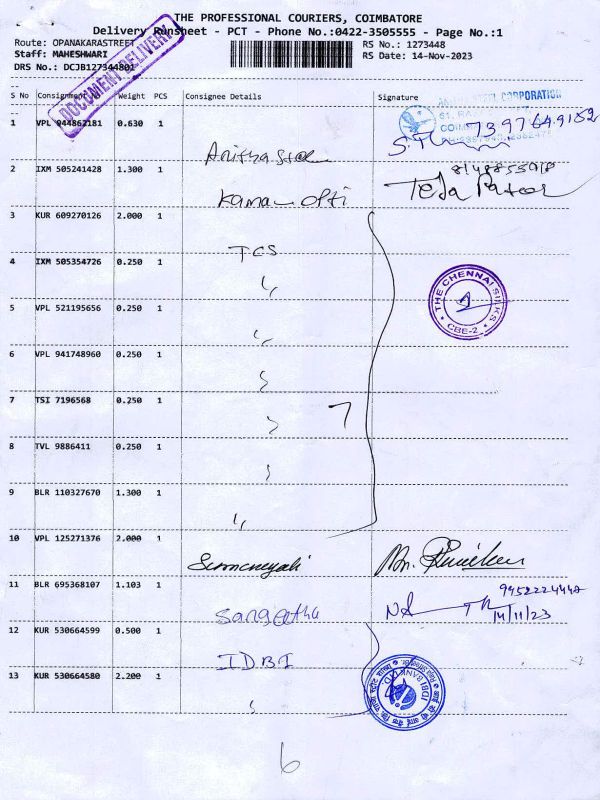 THE PROFESSIONAL COURIERS, COIMBATORE
Delivery Runsheet - PCT - Phone No.:0422-3505555 - Page No.:1
Route: OPANAKARASTREET
RS No.: 1273448
Staff: MAHESHWARI
RS Date: 14-Nov-2023
DRS No.: DCJB127344801
DOCUMENT DELIVERY
S No Consignment No Weight PCS Consignee Details Signature
CORPORATION
1 VPL 944862181 0.630 1
7397649152
2 IXM 505241428 1.300 1
3 KUR 609270126 2.000 1
TCS
4 IXM 505354726 0.250 1
"
THE CHENNAI SILKS
CBE-2
5 VPL 521195656 0.250 1
"
6 VPL 941748960 0.250 1
7 TSI 7196568 0.250 1
7
8 TVL 9886411 0.250 1
9 BLR 110327670 1.300 1
"
10 VPL 125271376 2.000 1
11 BLR 695368107 1.103 1
Sangeetha
14/11/23
12 KUR 530664599 0.500 1
IDBI
IDBI BANK
13 KUR 530664580 2.200 1
6